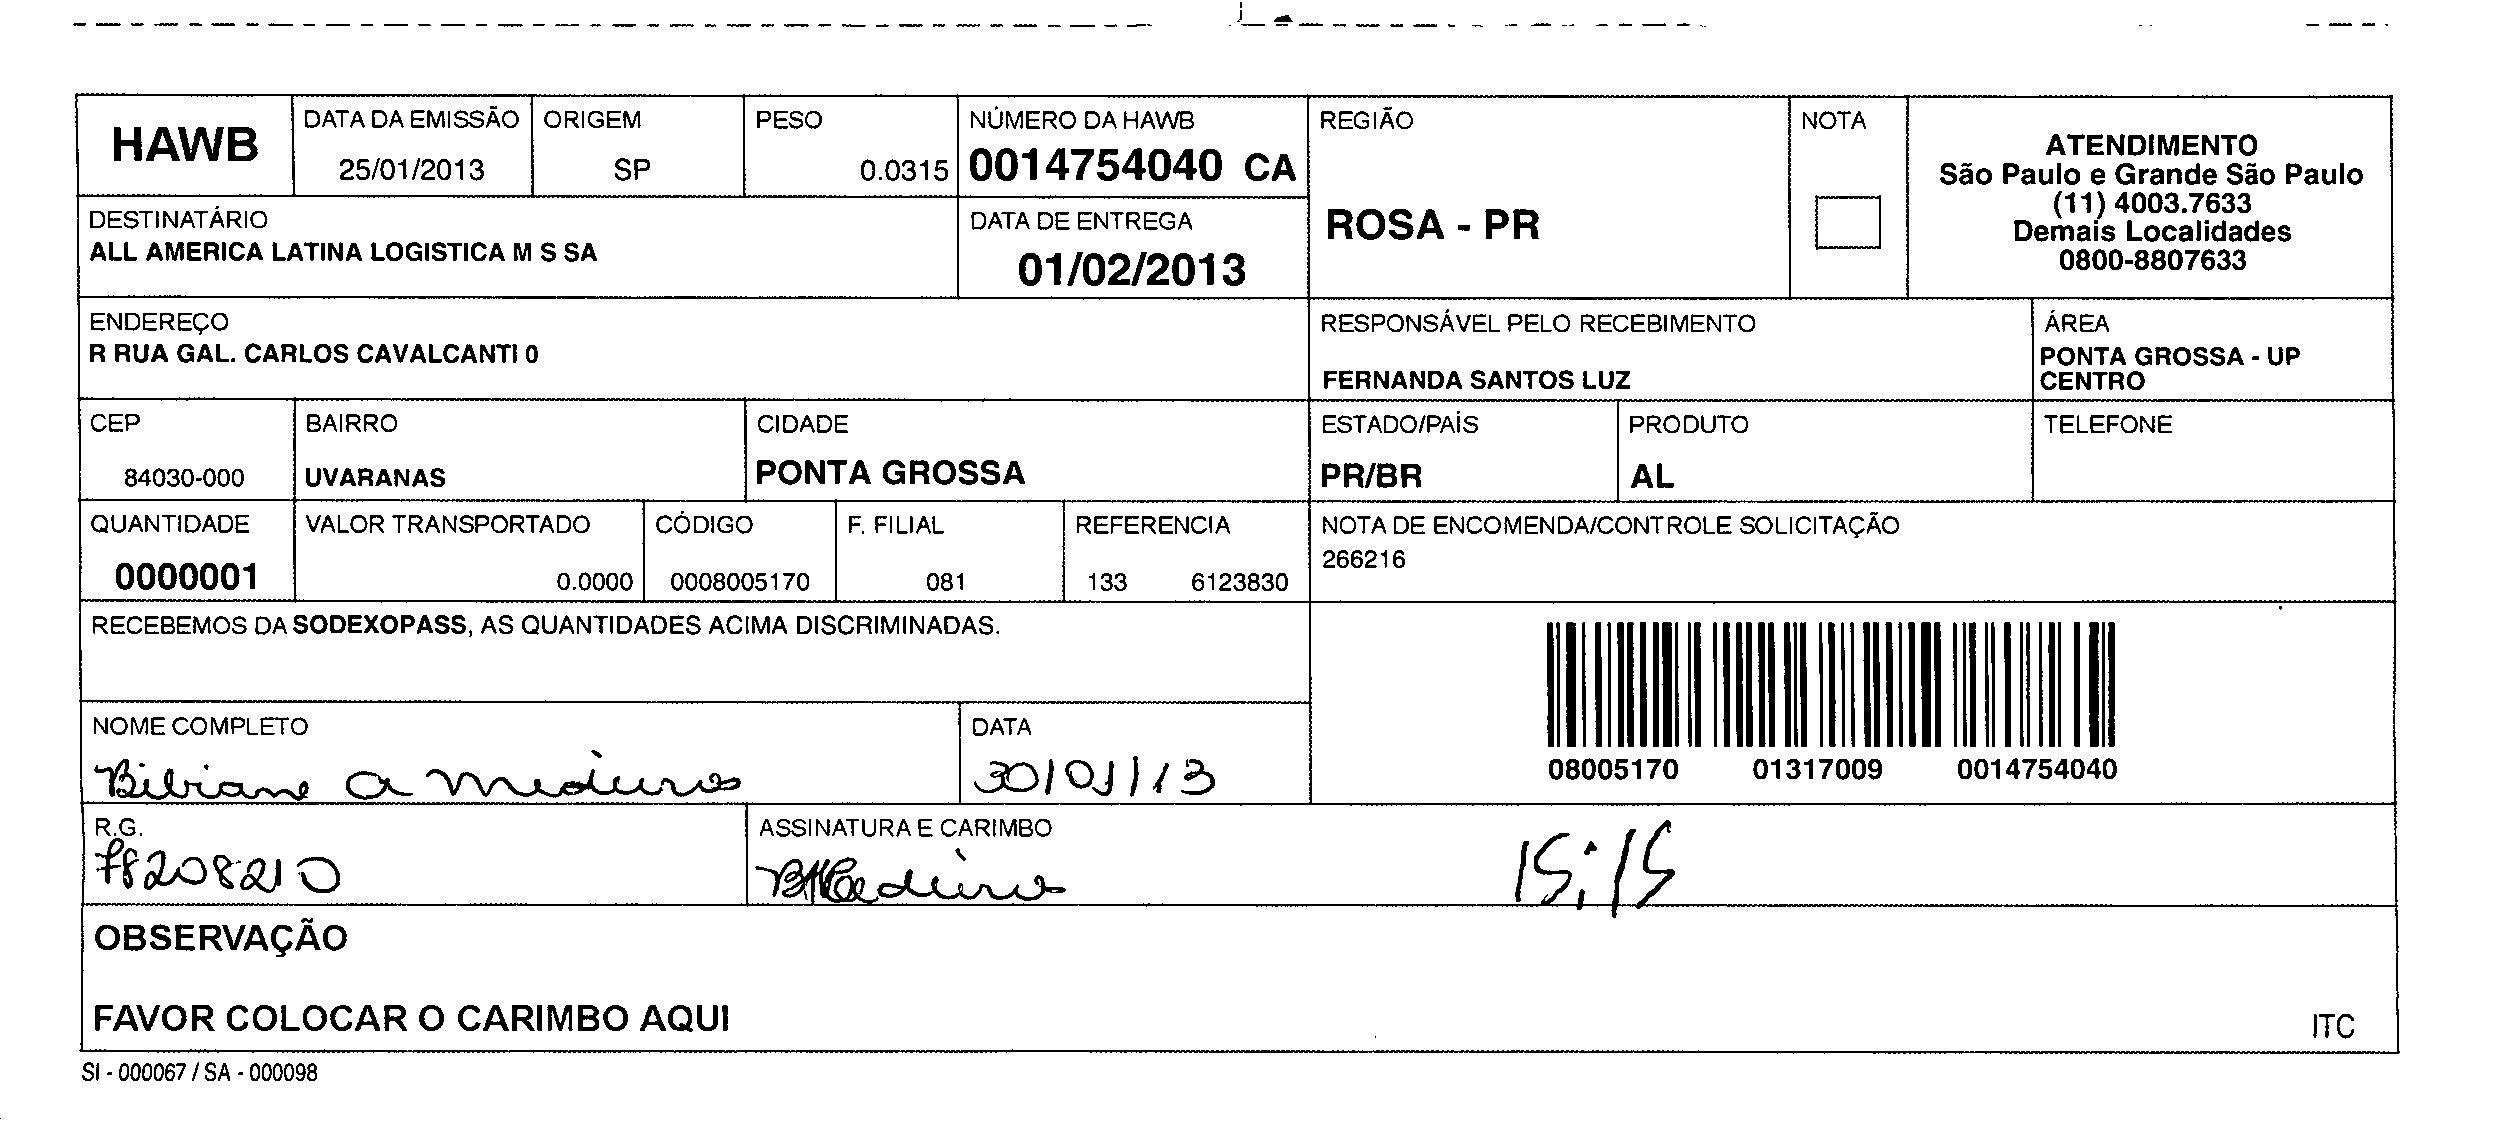 HAWB
DATA DA EMISSÃO
25/01/2013
ORIGEM
SP
PESO
0.0315
NÚMERO DA HAWB
0014754040 CA
REGIÃO
ROSA - PR
NOTA
ATENDIMENTO
São Paulo e Grande São Paulo
(11) 4003.7633
Demais Localidades
0800-8807633
DESTINATÁRIO
ALL AMERICA LATINA LOGISTICA M S SA
DATA DE ENTREGA
01/02/2013
ENDEREÇO
R RUA GAL. CARLOS CAVALCANTI 0
RESPONSÁVEL PELO RECEBIMENTO
FERNANDA SANTOS LUZ
ÁREA
PONTA GROSSA - UP
CENTRO
CEP
84030-000
BAIRRO
UVARANAS
CIDADE
PONTA GROSSA
ESTADO/PAÍS
PR/BR
PRODUTO
AL
TELEFONE
QUANTIDADE
0000001
VALOR TRANSPORTADO
0.0000
CÓDIGO
0008005170
F. FILIAL
081
REFERENCIA
133 6123830
NOTA DE ENCOMENDA/CONTROLE SOLICITAÇÃO
266216
RECEBEMOS DA SODEXOPASS, AS QUANTIDADES ACIMA DISCRIMINADAS.
08005170 01317009 0014754040
NOME COMPLETO
Bibiane a medeiros
DATA
30/01/13
R.G.
78208210
ASSINATURA E CARIMBO
BMedeiros
15:15
OBSERVAÇÃO
FAVOR COLOCAR O CARIMBO AQUI
ITC
SI - 000067 / SA - 000098